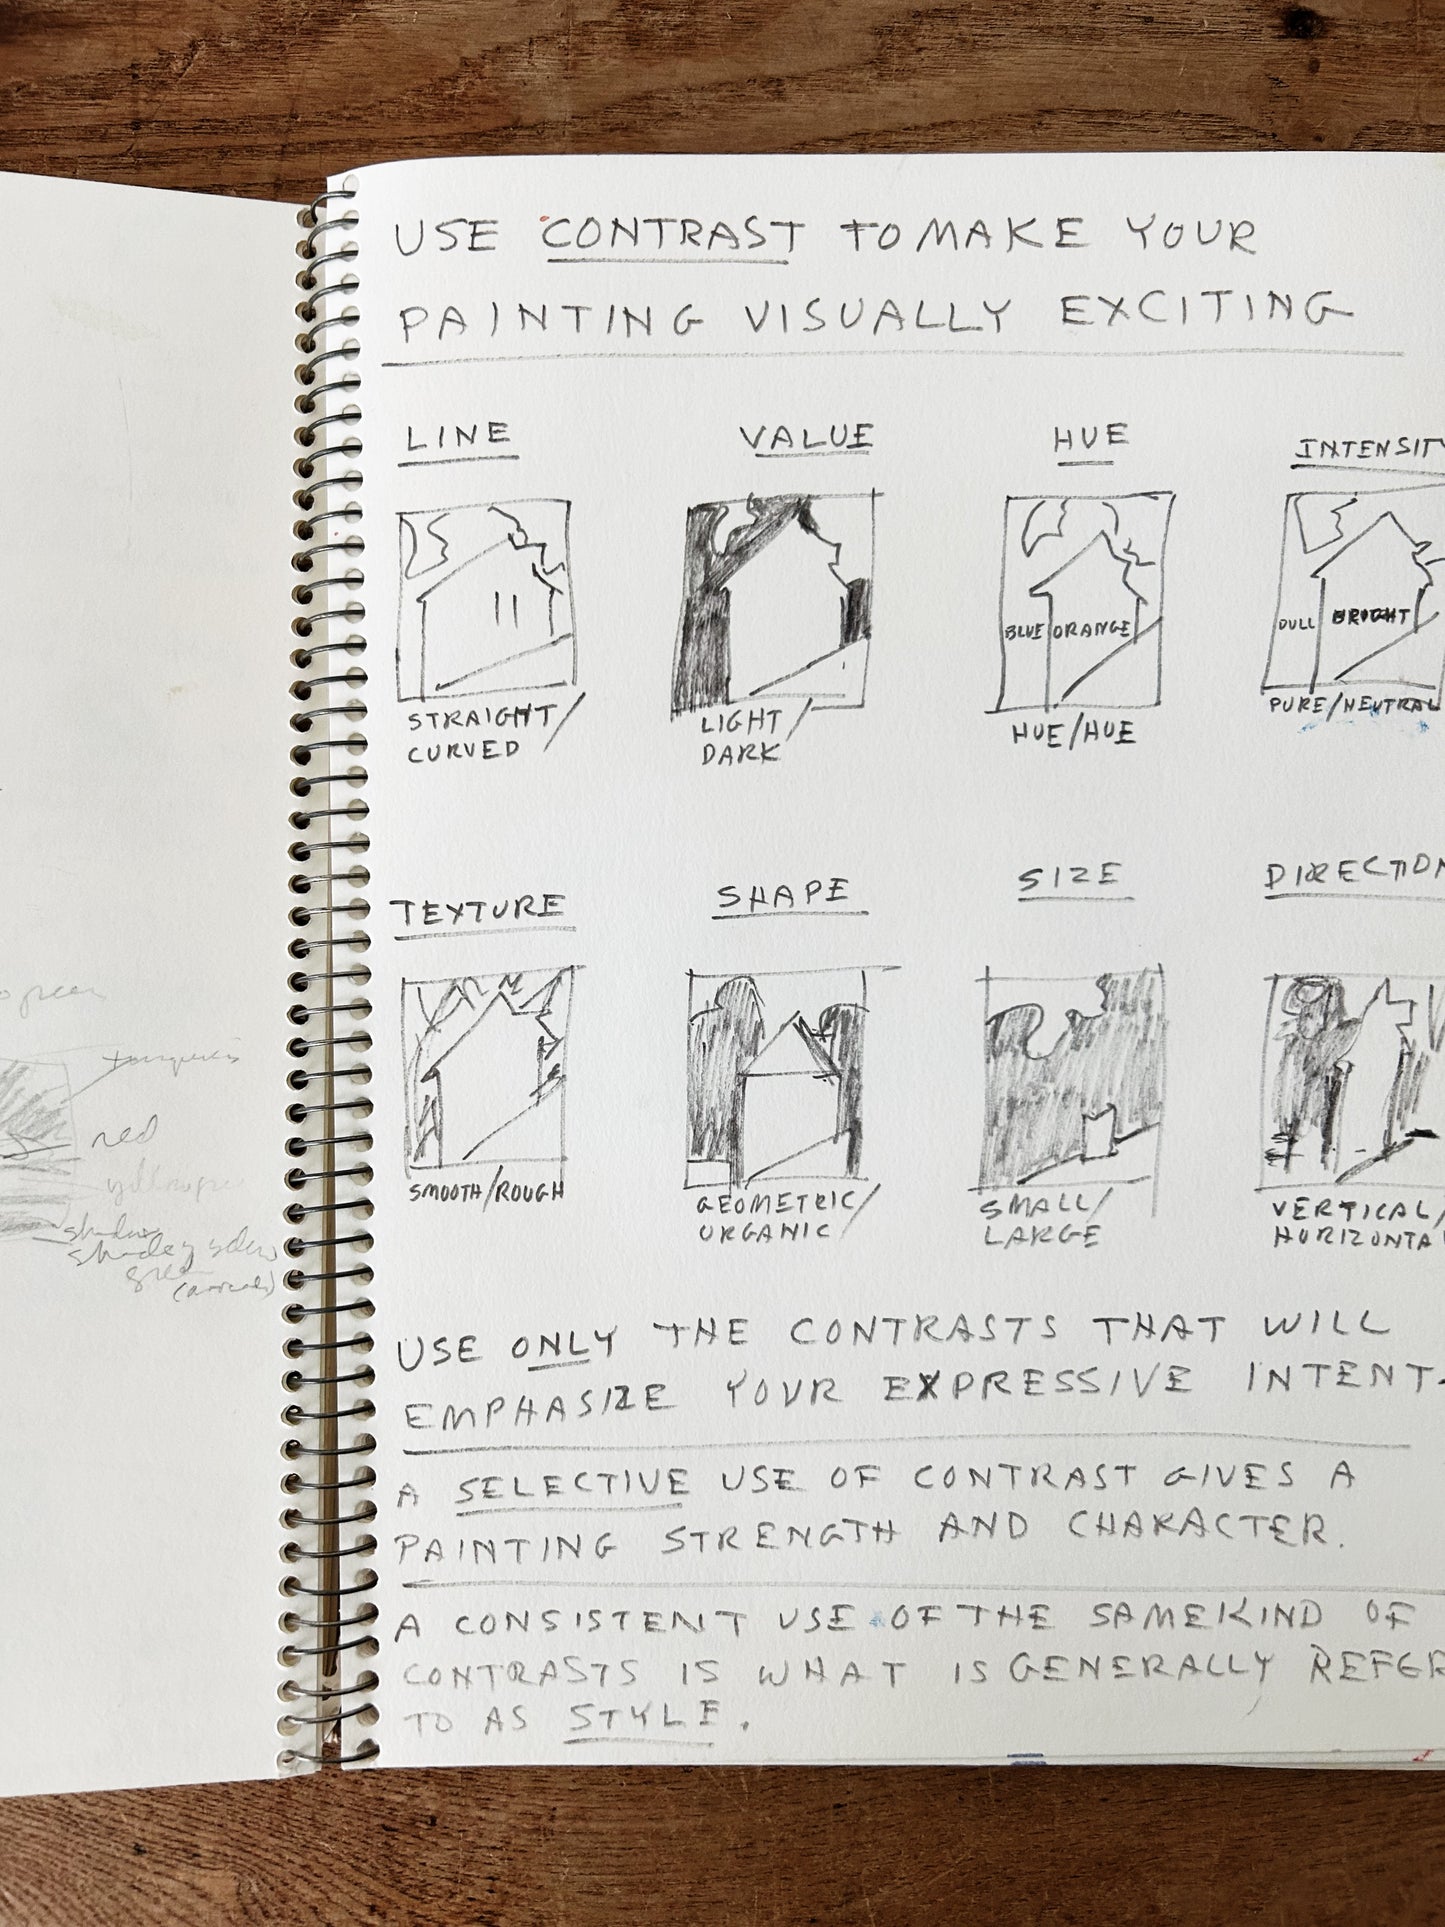 USE CONTRAST TO MAKE YOUR
PAINTING VISUALLY EXCITING
LINE
VALUE
HUE
INTENSITY
BLUE ORANGE
DULL BRIGHT
STRAIGHT/
CURVED
LIGHT/
DARK
HUE/HUE
PURE/NEUTRAL
TEXTURE
SHAPE
SIZE
DIRECTION
SMOOTH/ROUGH
GEOMETRIC/
ORGANIC
SMALL/
LARGE
VERTICAL/
HORIZONTA
USE ONLY THE CONTRASTS THAT WILL
EMPHASIZE YOUR EXPRESSIVE INTENT.
A SELECTIVE USE OF CONTRAST GIVES A
PAINTING STRENGTH AND CHARACTER.
A CONSISTENT USE OF THE SAME KIND OF
CONTRASTS IS WHAT IS GENERALLY REFER
TO AS STYLE.
red